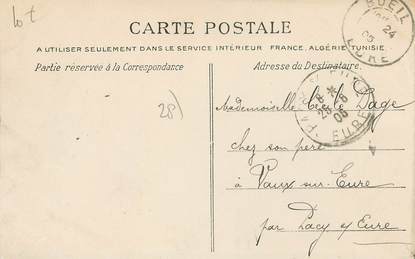 lot
CARTE POSTALE
A UTILISER SEULEMENT DANS LE SERVICE INTÉRIEUR FRANCE, ALGÉRIE TUNISIE
Partie réservée à la Correspondance
Adresse du Destinataire.
BUEIL
24
05
EURE
28)
8 *
26 -8
05
EURE
Mademoiselle Page
chez son père
à Vaux-sur-Eure
par Pacy s/ Eure